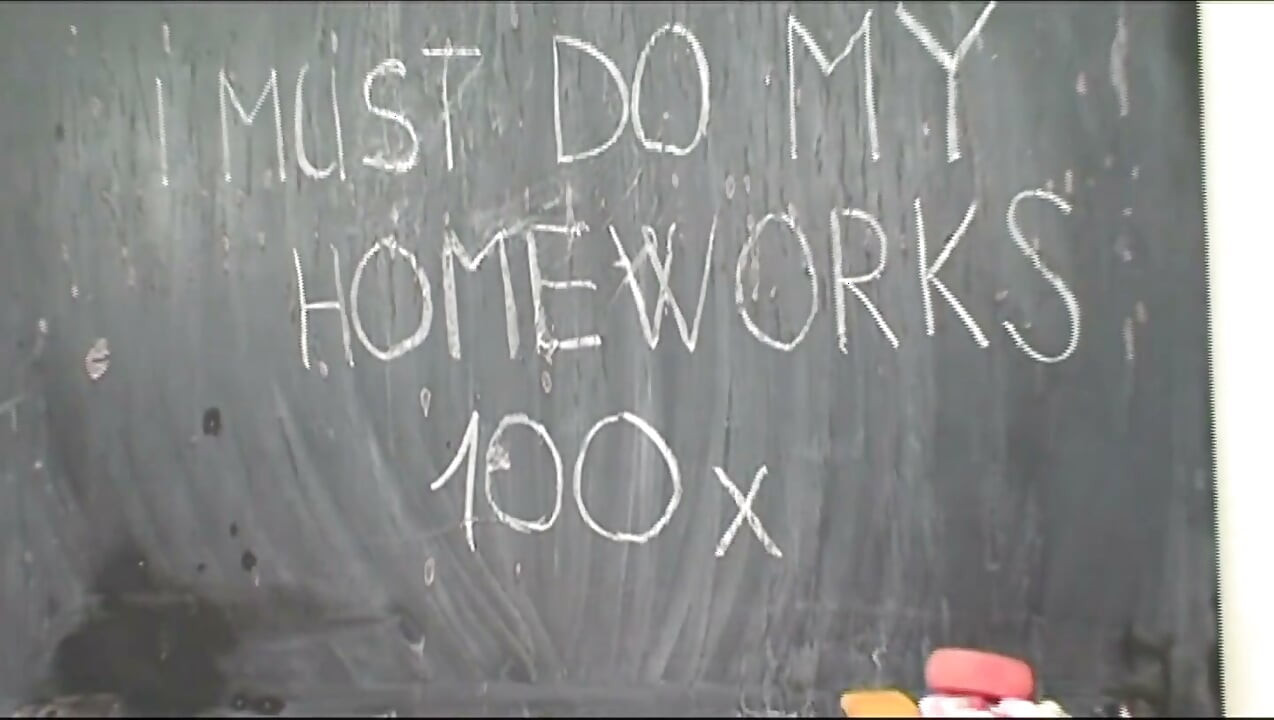 I MUST DO MY
HOMEWORKS
100 x